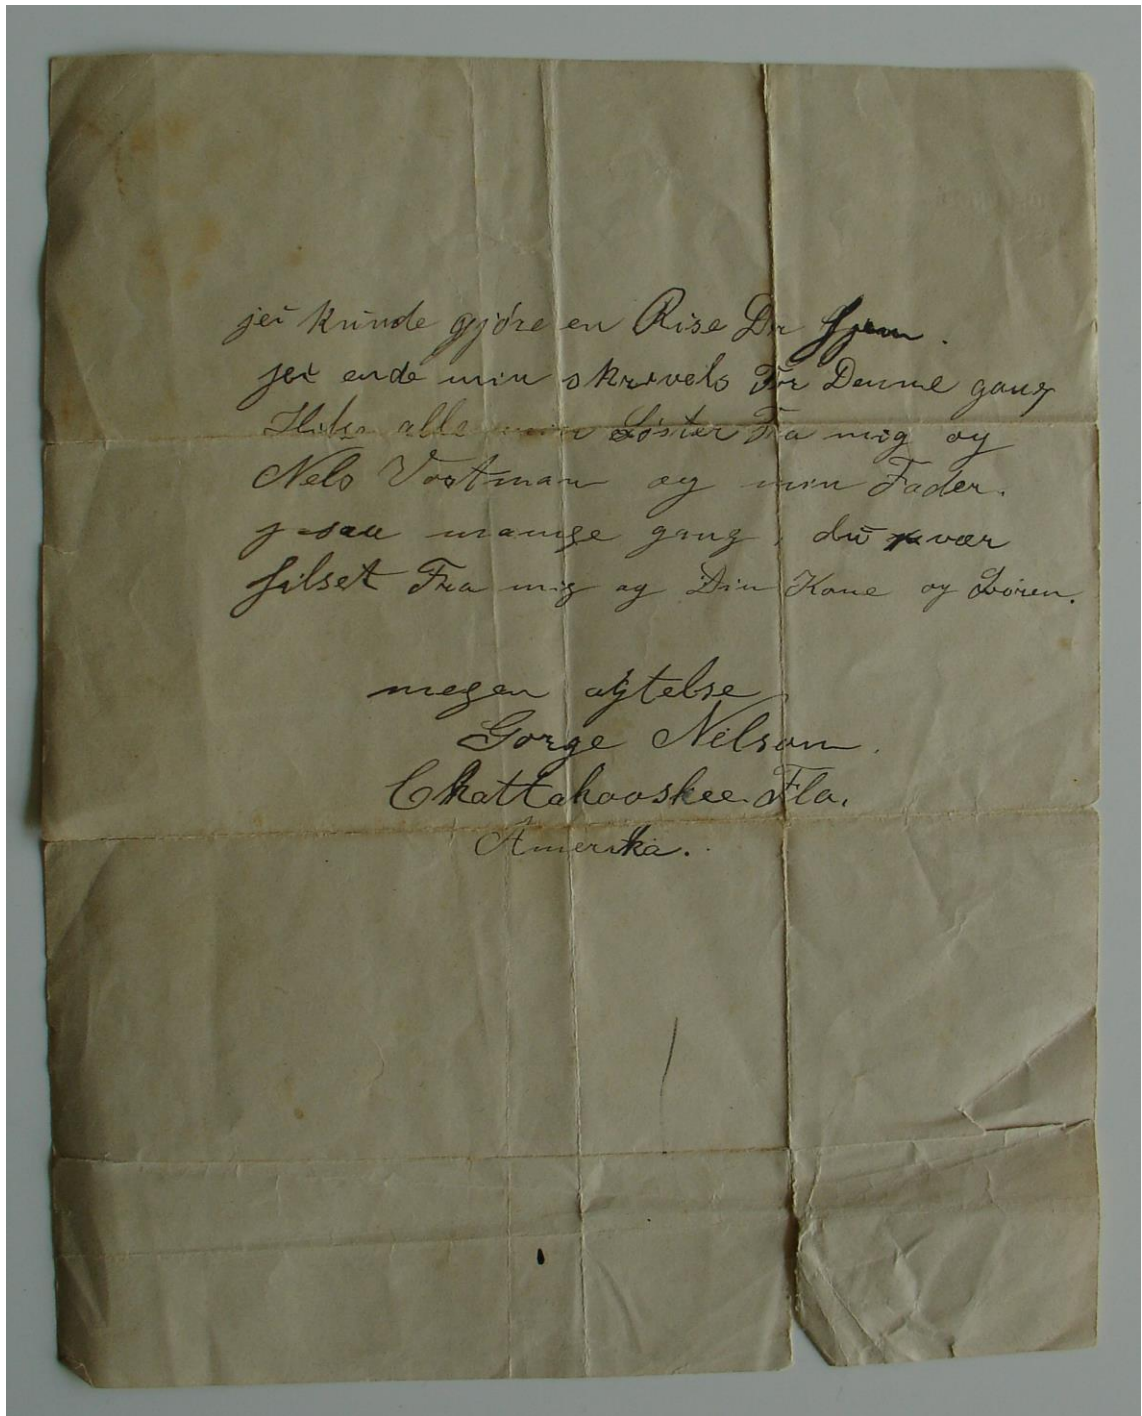 jei kunde gjöre en Rise Der hjem.
jei ende min skrivels For Denne gang
Hilse alle min Söster Fra mig og
Nels Vostman og min Fader.
saa mange gang, du vær
hilset Fra mig og Din Kone og Sören.
megen agtelse
Gorge Nelson.
Chattahooskee Fla.
Amerika.